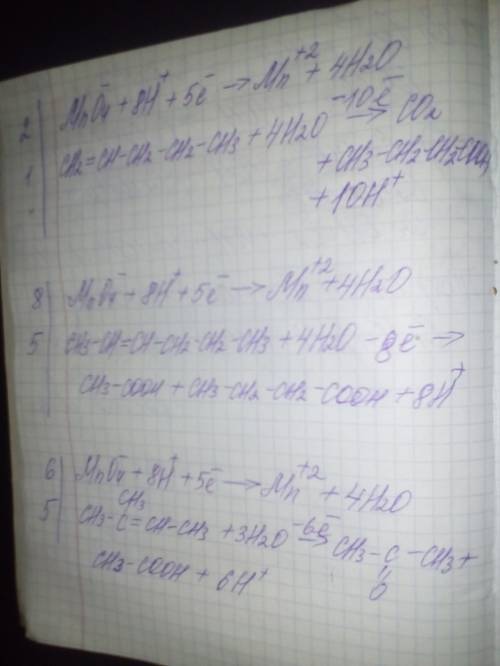 2 | MnO₄⁻ + 8H⁺ + 5ē → Mn⁺² + 4H₂O
1 | CH₂=CH-CH₂-CH₂-CH₃ + 4H₂O -10ē → CO₂
+ CH₃-CH₂-CH₂-COOH
+ 10H⁺
8 | MnO₄⁻ + 8H⁺ + 5ē → Mn⁺² + 4H₂O
5 | CH₃-CH=CH-CH₂-CH₂-CH₃ + 4H₂O - 8ē →
CH₃-COOH + CH₃-CH₂-CH₂-COOH + 8H⁺
6 | MnO₄⁻ + 8H⁺ + 5ē → Mn⁺² + 4H₂O
CH₃
5 | CH₃-C=CH-CH₃ + 3H₂O -6ē → CH₃-C-CH₃ +
CH₃-COOH + 6H⁺ O